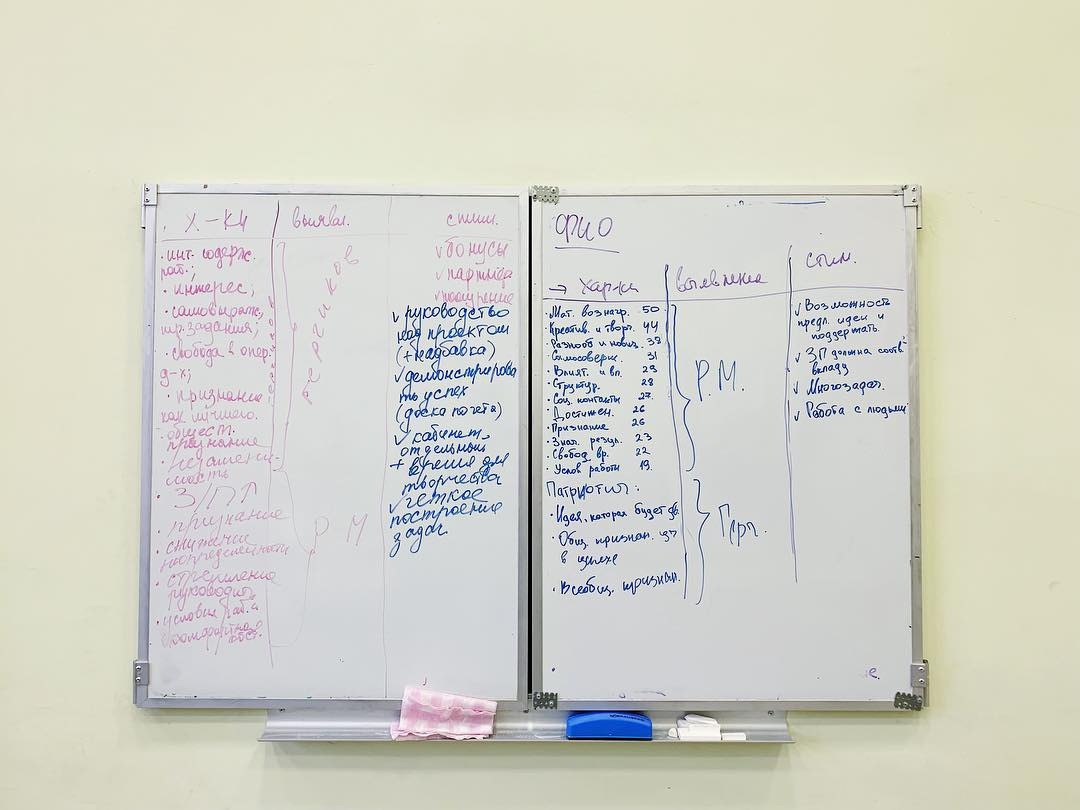 Х-КИ
выявл.
стим.
• инт. содерж.
раб.;
• интерес;
• самовыраж.
тр. задания;
• свобода в опер.
д-х;
• признание
как лучшего.
• обществ.
признание
незамени-
мость
• З/П↑
• признание
• снижение
неопределенности
• стремление
руководить
• условия раб. и
Р М
✓ бонусы
✓ награда
✓ поощрение
✓ руководство
над проектом
(+ надбавка)
✓ демонстрирова
ть успех
(доска почета)
✓ кабинет
отдельный
+ время для
творчества
✓ четкое
построение
задач
ФИО
→ Хар-ки
выявление
стим.
• Мат. вознагр. 50
• Креатив. и творч. 44
• Разнооб и новиз. 38
• Самосоверш. 31
• Влият. и вл. 29
• Структур. 28
• Соц. контакты 27
• Достижен. 26
• Признание 26
• Знач. резул. 23
• Свобод. вр. 22
• Услов работы 19
Р.М.
Патриотич:
• Идея, которая будет дв.
• Общ. признан.
в успехе
• Всеобщ. признан.
Герч.
✓ Возможность
предл. идеи и
поддержать.
✓ ЗП должна соотв
вкладу
✓ Многозадач.
✓ Работа с людьми